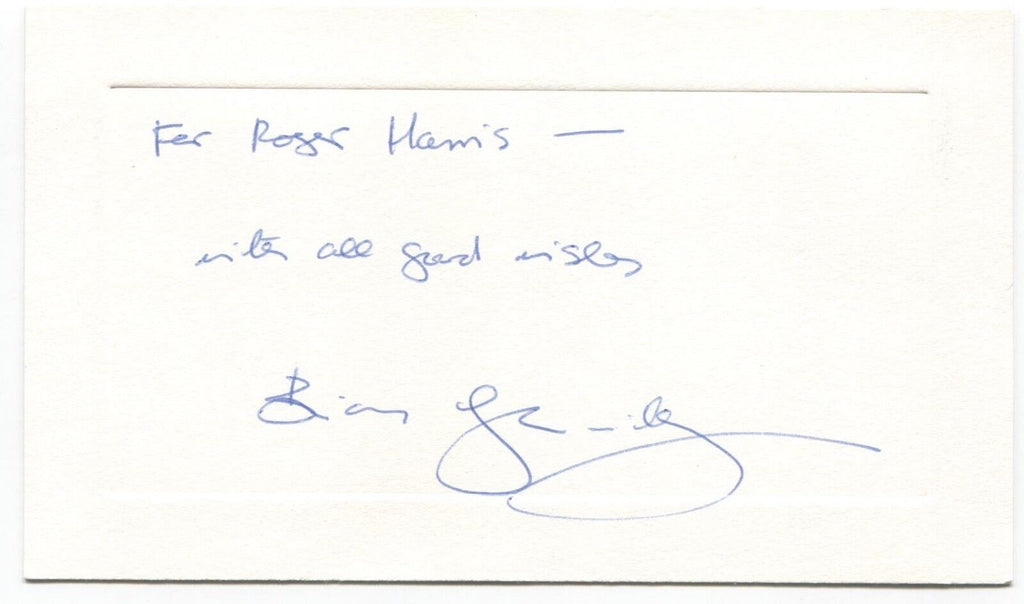 For Roger Harris —
with all good wishes
Brian